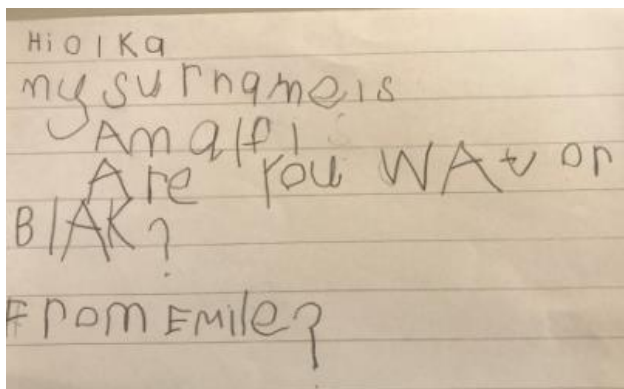 Hi Olka
my surname is
Amalfi
Are you WAt or
BlAK?
From Emile?